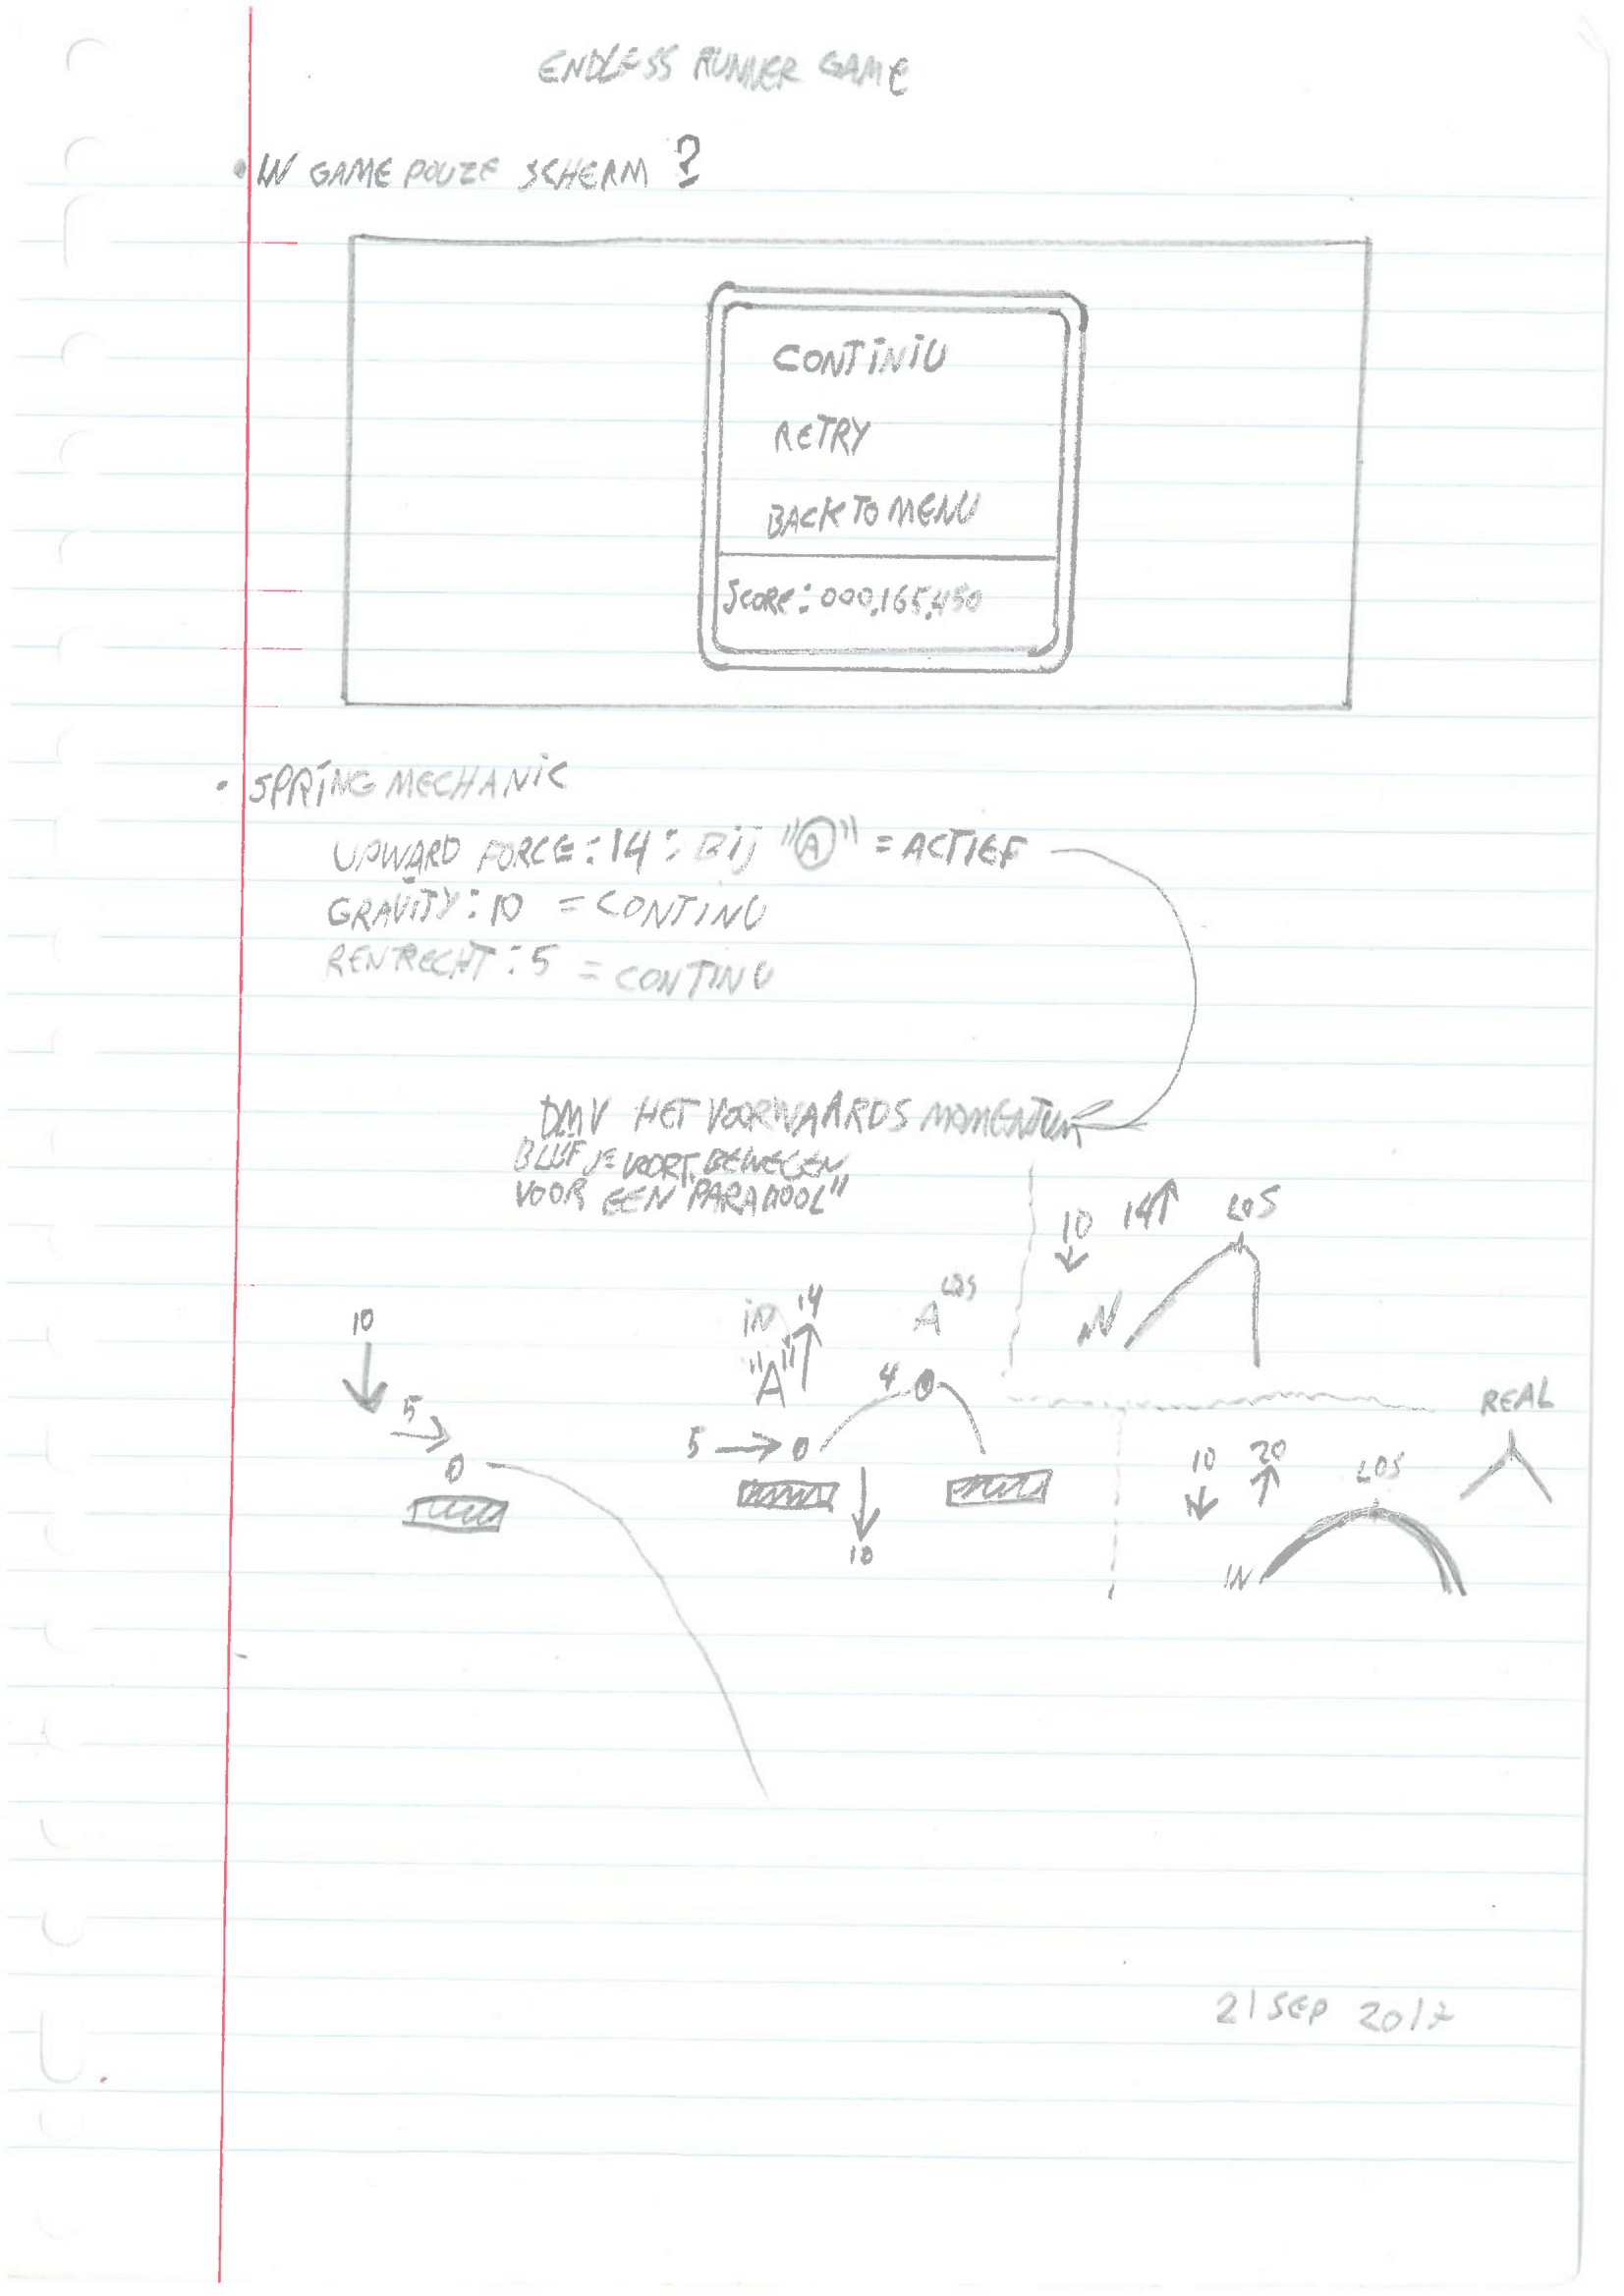 ENDLESS RUNNER GAME
• IN GAME POUZE SCHERM ?
CONTINIU
RETRY
BACK TO MENU
SCORE: 000.165.450
• SPRING MECHANIC
UPWARD FORCE: 14 : BIJ "A" = ACTIEF
GRAVITY: 10 = CONTINU
RENTRECHT: 5 = CONTINU
DMV HET VOORWAARDS MOMENTUM
BLIJF JE VOORT BEWEGEN
VOOR EEN "PARABOOL"
10
5
IN 14
"A"
A LOS
4
5
10
10 14 LOS
IN
REAL
10 20 LOS
IN
21 SEP 2017